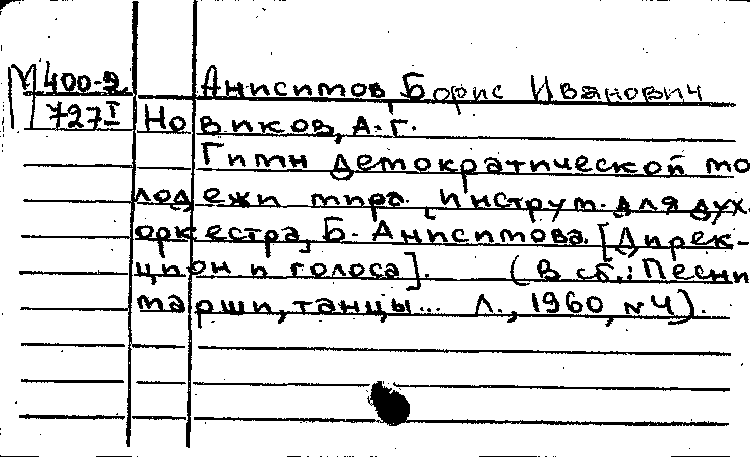 М 400-2 Анисимов, Борис Иванович
727 I Новиков, А.Г.
Гимн демократической мо
лодежи мира. Инструм. для дух.
оркестра, Б. Анисимова. [Дирек-
цион и голоса]. (В сб.: Песни
марши, танцы... Л., 1960, №4).